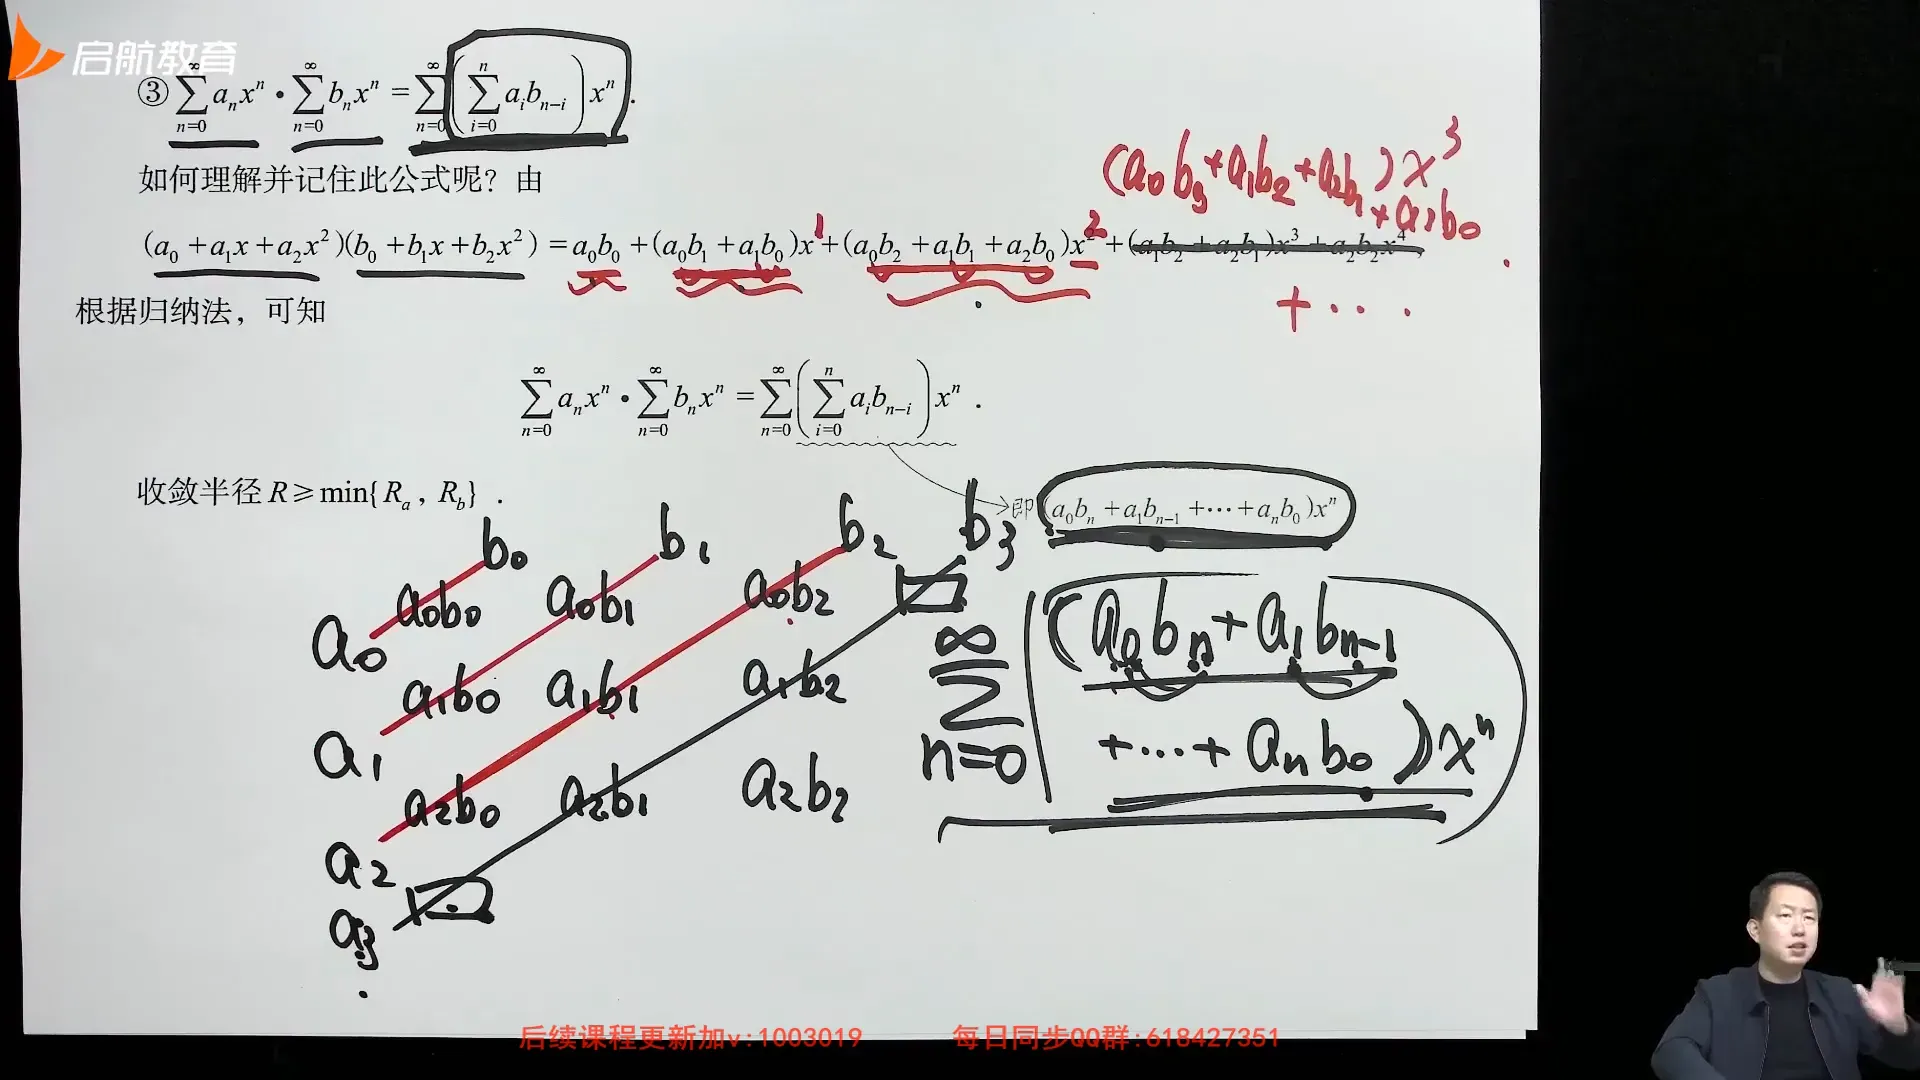 启航教育
③ $\sum_{n=0}^{\infty} a_n x^n \cdot \sum_{n=0}^{\infty} b_n x^n = \sum_{n=0}^{\infty} \left( \sum_{i=0}^{n} a_i b_{n-i} \right) x^n$.
如何理解并记住此公式呢？由
(a₀b₃+a₁b₂+a₂b₁ )x³
+a₃b₀
(a₀ +a₁x+a₂x²)(b₀ +b₁x+b₂x²) =a₀b₀ +(a₀b₁ +a₁b₀)x¹+(a₀b₂ +a₁b₁ +a₂b₀)x²+(a₁b₂ +a₂b₁)x³ +a₂b₂x⁴
+ · · ·
根据归纳法，可知
$\sum_{n=0}^{\infty} a_n x^n \cdot \sum_{n=0}^{\infty} b_n x^n = \sum_{n=0}^{\infty} \left( \sum_{i=0}^{n} a_i b_{n-i} \right) x^n$ .
收敛半径 R⩾min{Rₐ , R_b} .
即(a₀bₙ +a₁bₙ₋₁ +⋯+aₙb₀)xⁿ
b₀ b₁ b₂ b₃
a₀ a₀b₀ a₀b₁ a₀b₂
a₁ a₁b₀ a₁b₁ a₁b₂
a₂ a₂b₀ a₂b₁ a₂b₂
a₃
$\sum_{n=0}^{\infty}$ (a₀bₙ+a₁bₙ₋₁
+⋯+aₙb₀)xⁿ
后续课程更新加v:1003019 每日同步QQ群:618427351